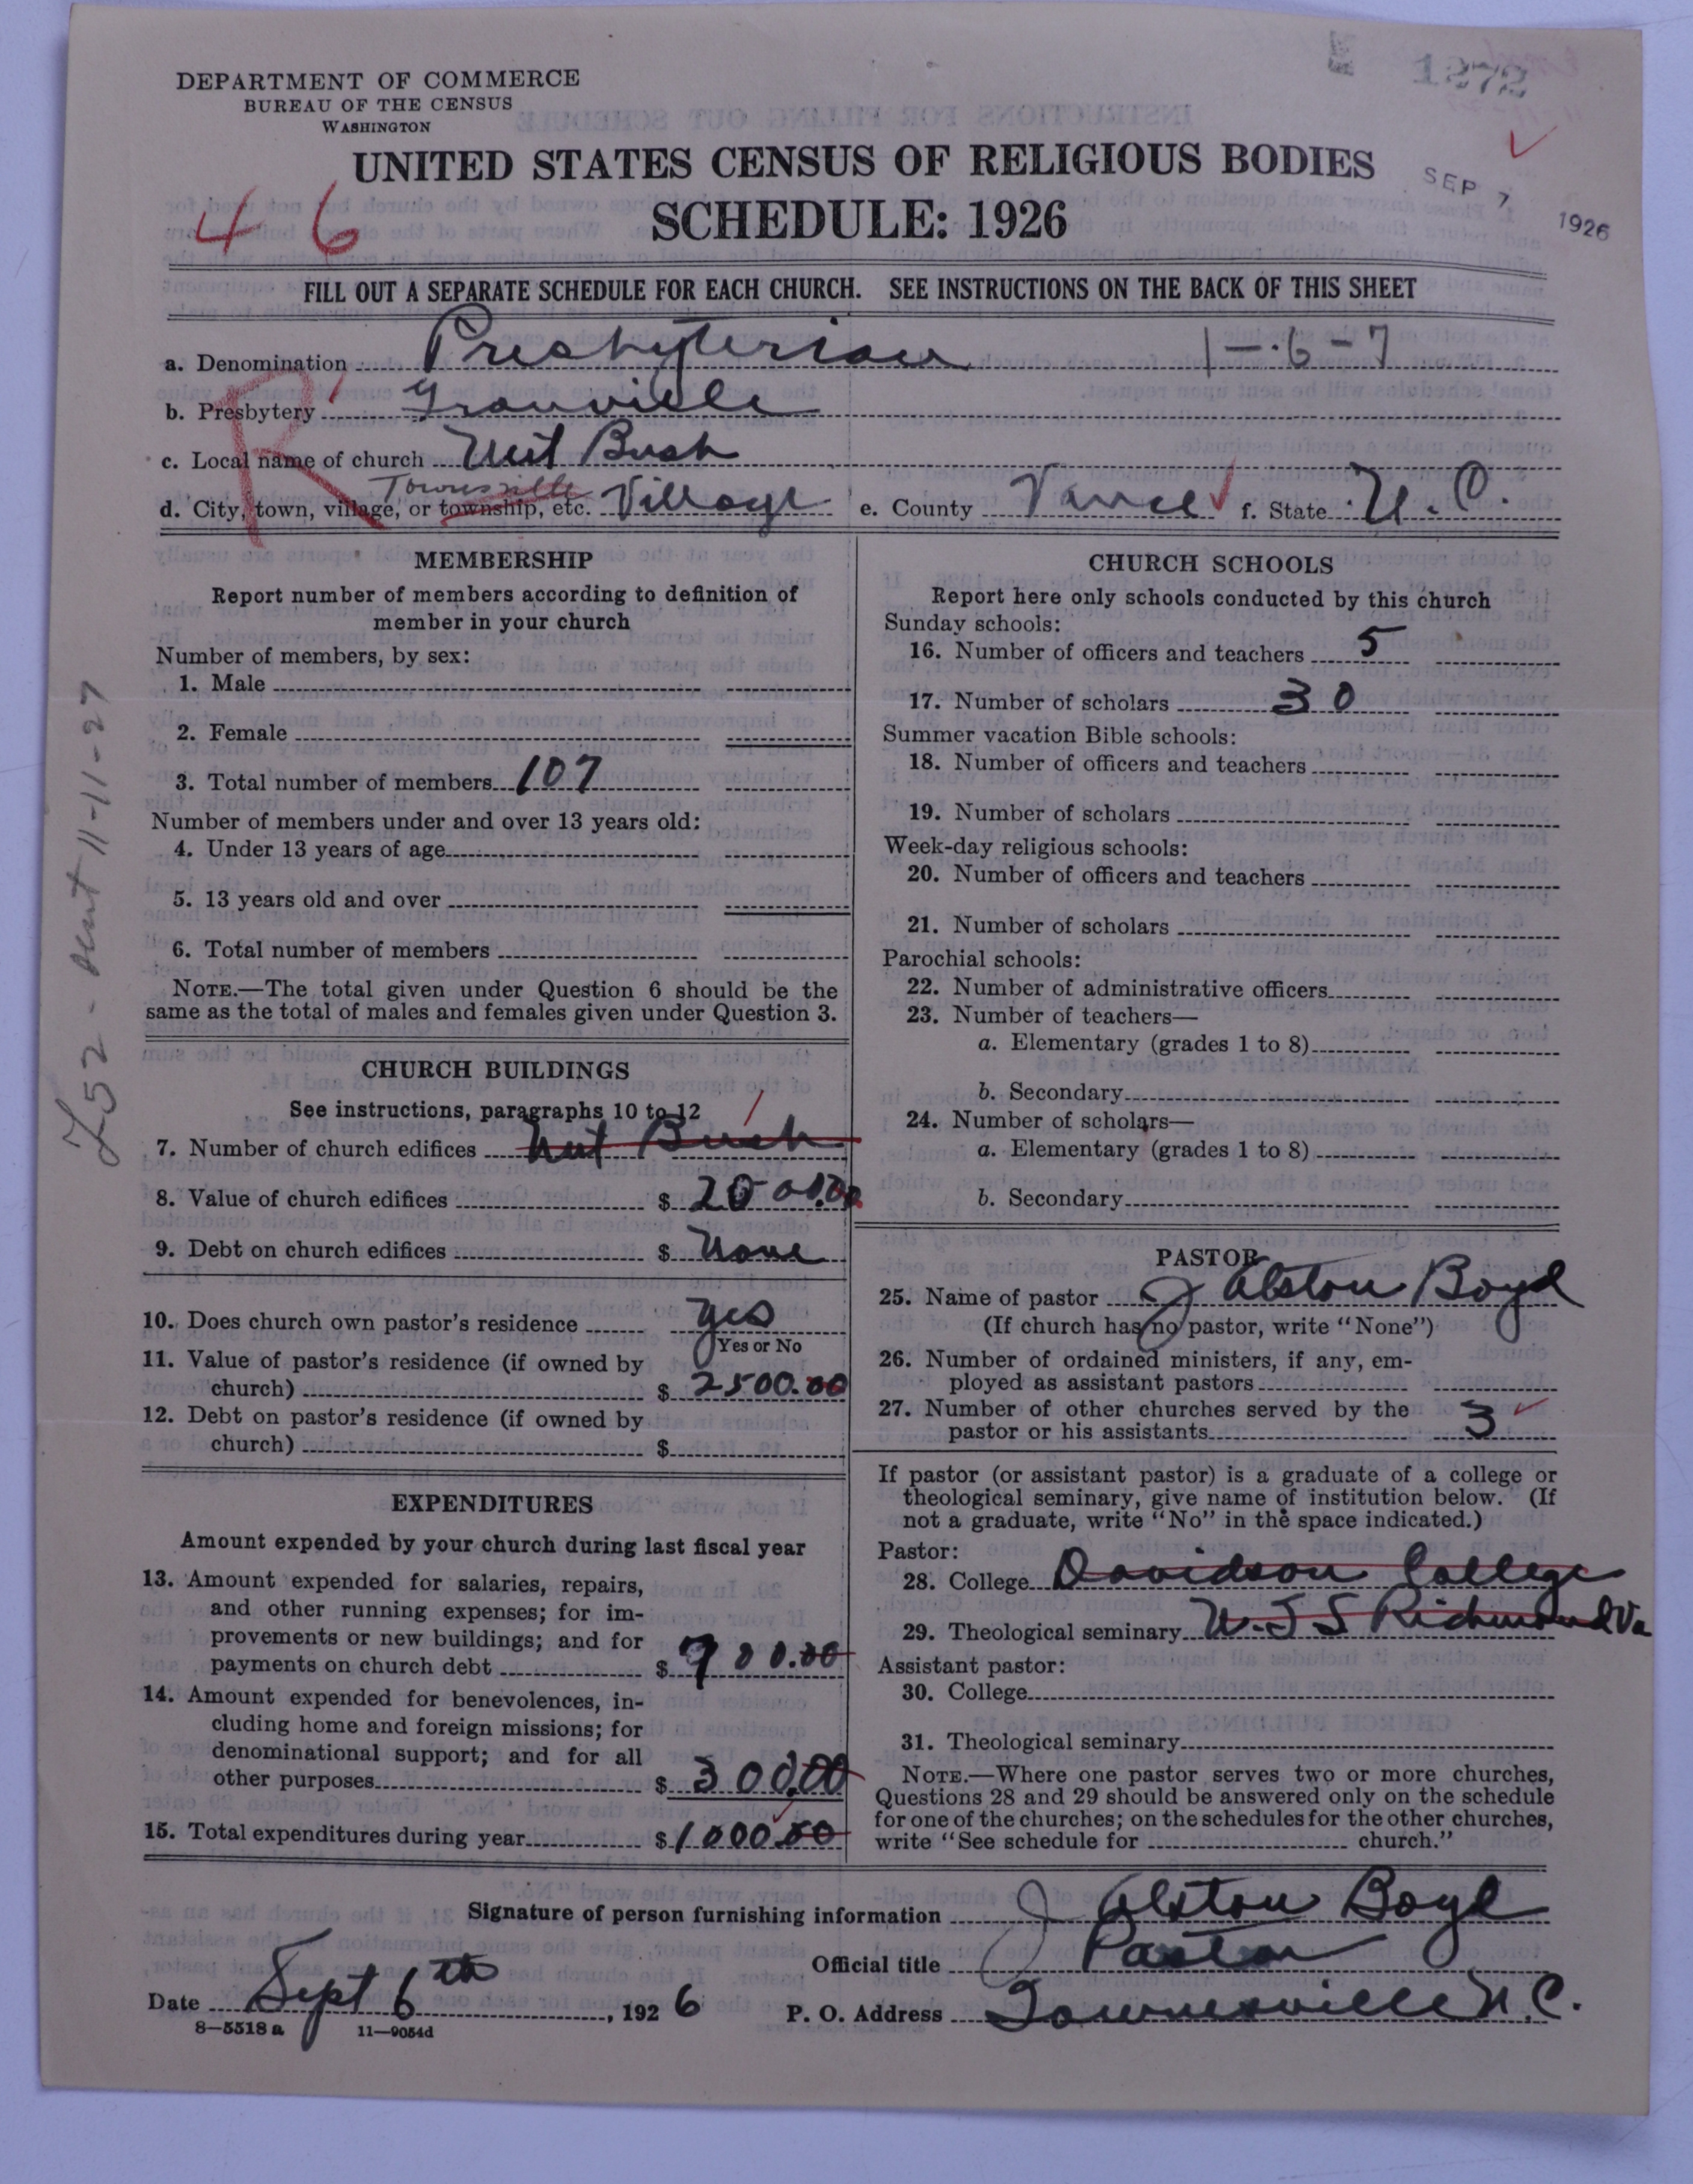 1272
DEPARTMENT OF COMMERCE
BUREAU OF THE CENSUS
WASHINGTON
UNITED STATES CENSUS OF RELIGIOUS BODIES
SCHEDULE: 1926
SEP 7 1926
4 6
FILL OUT A SEPARATE SCHEDULE FOR EACH CHURCH. SEE INSTRUCTIONS ON THE BACK OF THIS SHEET
a. Denomination Presbyterian 1-6-7
b. Presbytery Granville
R
c. Local name of church Nut Bush
Townsville
d. City, town, village, or township, etc. Village e. County Vance f. State N.C.
MEMBERSHIP
Report number of members according to definition of
member in your church
Number of members, by sex:
1. Male
2. Female
3. Total number of members 107
Number of members under and over 13 years old:
4. Under 13 years of age
5. 13 years old and over
6. Total number of members
NOTE.—The total given under Question 6 should be the
same as the total of males and females given under Question 3.
CHURCH BUILDINGS
See instructions, paragraphs 10 to 12
7. Number of church edifices Nut Bush 1
8. Value of church edifices $ 2000.00
9. Debt on church edifices $ None
10. Does church own pastor's residence Yes
Yes or No
11. Value of pastor's residence (if owned by
church) $ 2500.00
12. Debt on pastor's residence (if owned by
church) $
EXPENDITURES
Amount expended by your church during last fiscal year
13. Amount expended for salaries, repairs,
and other running expenses; for im-
provements or new buildings; and for
payments on church debt $ 700.00
14. Amount expended for benevolences, in-
cluding home and foreign missions; for
denominational support; and for all
other purposes $ 300.00
15. Total expenditures during year $ 1000.00
CHURCH SCHOOLS
Report here only schools conducted by this church
Sunday schools:
16. Number of officers and teachers 5
17. Number of scholars 30
Summer vacation Bible schools:
18. Number of officers and teachers
19. Number of scholars
Week-day religious schools:
20. Number of officers and teachers
21. Number of scholars
Parochial schools:
22. Number of administrative officers
23. Number of teachers—
a. Elementary (grades 1 to 8)
b. Secondary
24. Number of scholars—
a. Elementary (grades 1 to 8)
b. Secondary
PASTOR
25. Name of pastor J Alston Boyd
(If church has no pastor, write "None")
26. Number of ordained ministers, if any, em-
ployed as assistant pastors
27. Number of other churches served by the
pastor or his assistants 3
If pastor (or assistant pastor) is a graduate of a college or
theological seminary, give name of institution below. (If
not a graduate, write "No" in the space indicated.)
Pastor:
28. College Davidson College
29. Theological seminary U.T.S Richmond Va
Assistant pastor:
30. College
31. Theological seminary
NOTE.—Where one pastor serves two or more churches,
Questions 28 and 29 should be answered only on the schedule
for one of the churches; on the schedules for the other churches,
write "See schedule for church."
Signature of person furnishing information J Alston Boyd
Official title Pastor
Date Sept 6th, 1926 P. O. Address Townesville N.C.
8—5518 a 11—9054d
11-11-27